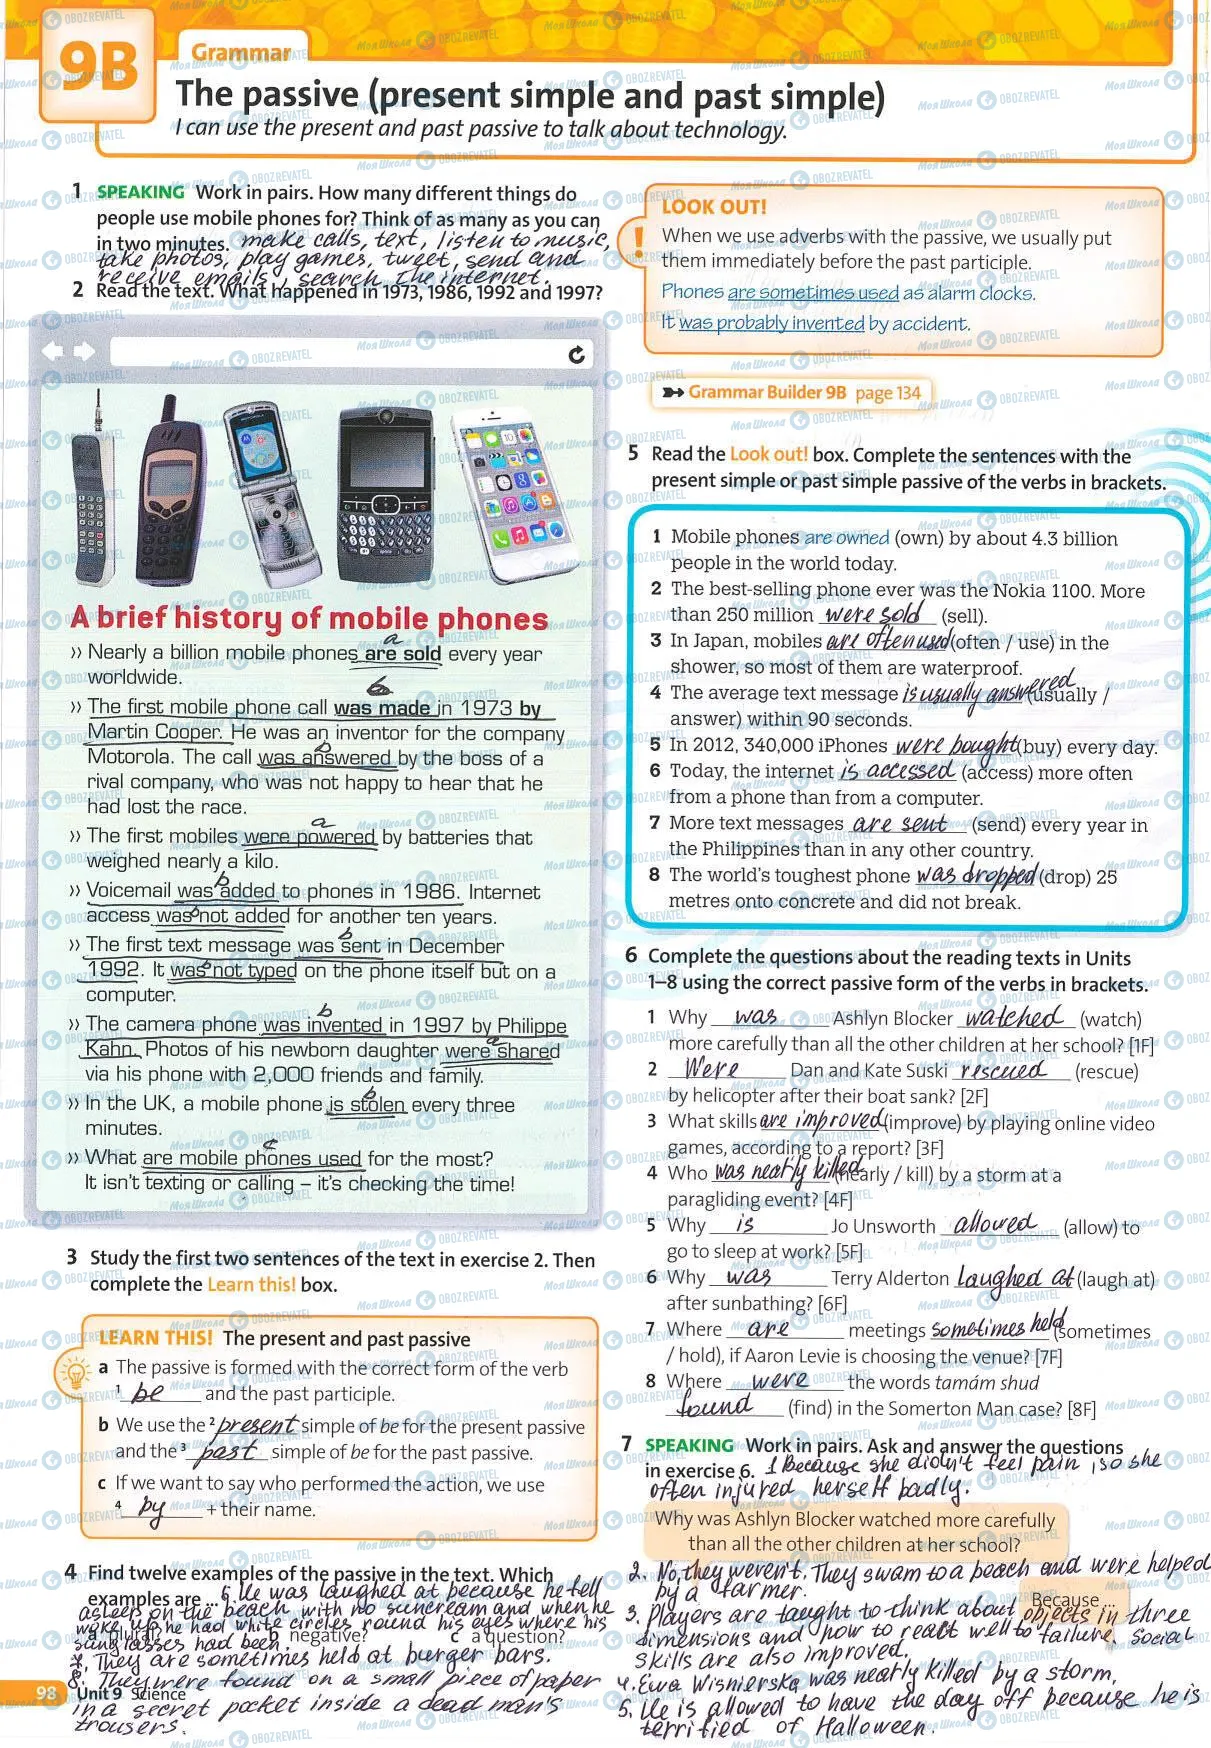 9B
Grammar
The passive (present simple and past simple)
I can use the present and past passive to talk about technology.
1 SPEAKING Work in pairs. How many different things do
people use mobile phones for? Think of as many as you can
in two minutes. make calls, text, listen to music,
take photos, play games, tweet, send and
receive emails, search the internet.
2 Read the text. What happened in 1973, 1986, 1992 and 1997?
A brief history of mobile phones
a
›› Nearly a billion mobile phones are sold every year
worldwide.
b
›› The first mobile phone call was made in 1973 by
Martin Cooper. He was an inventor for the company
b
Motorola. The call was answered by the boss of a
rival company, who was not happy to hear that he
had lost the race.
a
›› The first mobiles were powered by batteries that
weighed nearly a kilo.
b
›› Voicemail was added to phones in 1986. Internet
b
access was not added for another ten years.
b
›› The first text message was sent in December
b
1992. It was not typed on the phone itself but on a
computer.
b
›› The camera phone was invented in 1997 by Philippe
a
Kahn. Photos of his newborn daughter were shared
via his phone with 2,000 friends and family.
b
›› In the UK, a mobile phone is stolen every three
minutes.
c
›› What are mobile phones used for the most?
It isn't texting or calling – it's checking the time!
3 Study the first two sentences of the text in exercise 2. Then
complete the Learn this! box.
LEARN THIS! The present and past passive
a The passive is formed with the correct form of the verb
1 be and the past participle.
b We use the 2 present simple of be for the present passive
and the 3 past simple of be for the past passive.
c If we want to say who performed the action, we use
4 by + their name.
4 Find twelve examples of the passive in the text. Which
examples are ... 6. He was laughed at because he fell
asleep on the beach with no suncream and when he
woke up he had white circles round his eyes where his
a plural? b negative? c a question?
sunglasses had been.
7. They are sometimes held at burger bars.
8. They were found on a small piece of paper
98 Unit 9 Science
in a secret pocket inside a dead man's
trousers.
LOOK OUT!
! When we use adverbs with the passive, we usually put
them immediately before the past participle.
Phones are sometimes used as alarm clocks.
It was probably invented by accident.
Grammar Builder 9B page 134
5 Read the Look out! box. Complete the sentences with the
present simple or past simple passive of the verbs in brackets.
1 Mobile phones are owned (own) by about 4.3 billion
people in the world today.
2 The best-selling phone ever was the Nokia 1100. More
than 250 million were sold (sell).
3 In Japan, mobiles are often used (often / use) in the
shower, so most of them are waterproof.
4 The average text message is usually answered (usually /
answer) within 90 seconds.
5 In 2012, 340,000 iPhones were bought (buy) every day.
6 Today, the internet is accessed (access) more often
from a phone than from a computer.
7 More text messages are sent (send) every year in
the Philippines than in any other country.
8 The world's toughest phone was dropped (drop) 25
metres onto concrete and did not break.
6 Complete the questions about the reading texts in Units
1–8 using the correct passive form of the verbs in brackets.
1 Why was Ashlyn Blocker watched (watch)
more carefully than all the other children at her school? [1F]
2 Were Dan and Kate Suski rescued (rescue)
by helicopter after their boat sank? [2F]
3 What skills are improved (improve) by playing online video
games, according to a report? [3F]
4 Who was nearly killed (nearly / kill) by a storm at a
paragliding event? [4F]
5 Why is Jo Unsworth allowed (allow) to
go to sleep at work? [5F]
6 Why was Terry Alderton laughed at (laugh at)
after sunbathing? [6F]
7 Where are meetings sometimes held (sometimes
/ hold), if Aaron Levie is choosing the venue? [7F]
8 Where were the words tamám shud
found (find) in the Somerton Man case? [8F]
7 SPEAKING Work in pairs. Ask and answer the questions
in exercise 6. 1 Because she didn't feel pain, so she
often injured herself badly.
Why was Ashlyn Blocker watched more carefully
than all the other children at her school?
2. No, they weren't. They swam to a beach and were helped
by a farmer.
Because ...
3. Players are taught to think about objects in three
dimensions and how to react well to failure. Social
skills are also improved.
4. Ewa Wisnierska was nearly killed by a storm.
5. He is allowed to have the day off because he is
terrified of Halloween.